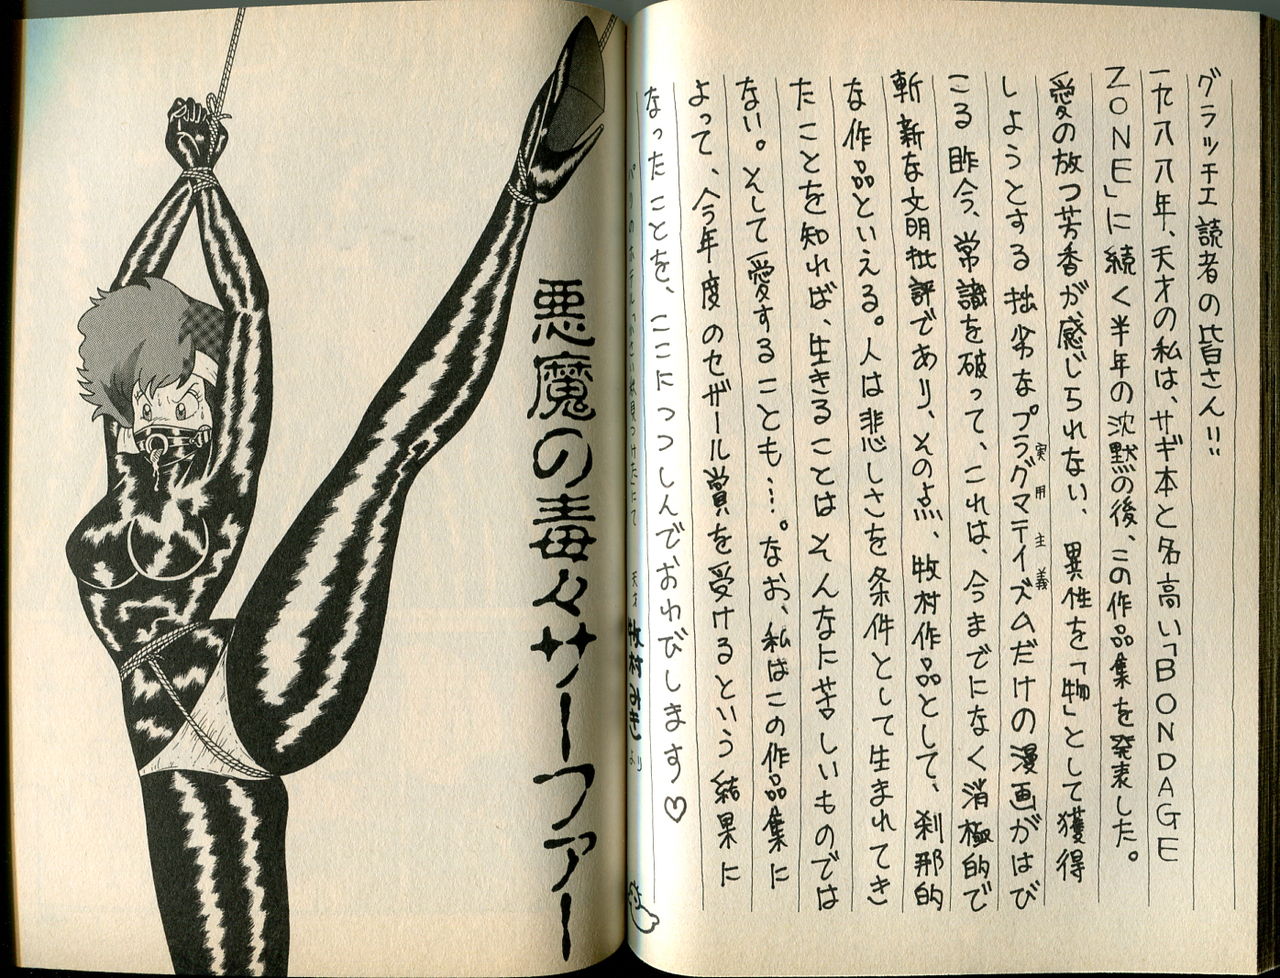 グラッチェ読者の皆さん!!
一九八八年、天才の私は、サギ本と名高い「BONDAGE
ZONE」に続く半年の沈黙の後、この作品集を発表した。
愛の放つ芳香が感じられない、異性を「物」として獲得
しようとする拙劣なプラグマティズムだけの漫画がはび
実用主義
こる昨今、常識を破って、これは、今までになく消極的で
斬新な文明批評であり、その点、牧村作品として、刹那的
な作品といえる。人は悲しさを条件として生まれてき
たことを知れば、生きることはそんなに苦しいものでは
ない。そして愛することも…。なお、私はこの作品集に
よって、今年度のセザール賞を受けるという結果に
なったことを、ここにつつしんでおわびします♡
パリのホテル にて 天才 牧村みき より
悪魔の毒々サーファー